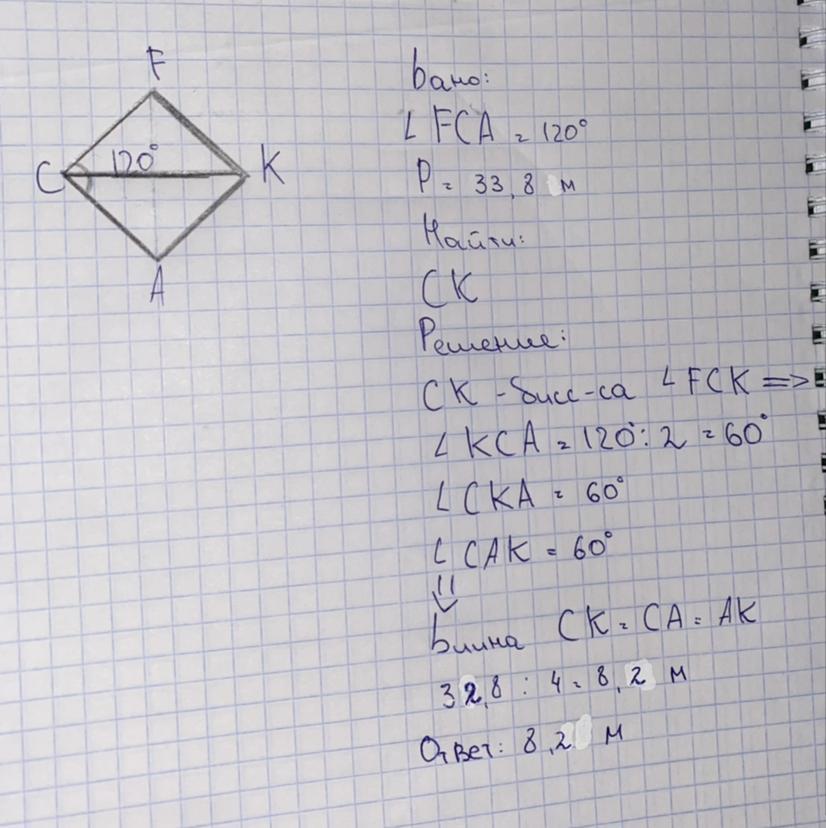 F
C 120° K
A
Дано:
∠FCA = 120°
P = 33,8 м
Найти:
CK
Решение:
CK - бисс-са ∠FCK =>
∠KCA = 120° : 2 = 60°
∠CKA = 60°
∠CAK = 60°
⇓
Длина CK = CA = AK
32,8 : 4 = 8,2 м
Ответ: 8,2 м